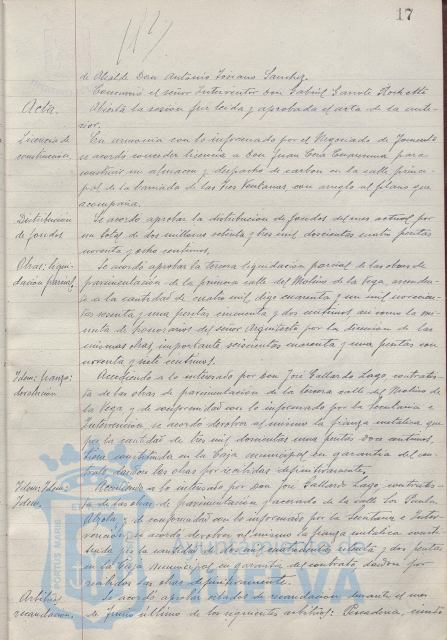 17
de Alcalde Don Antonio Soriano Sanchez.
Concurrió el señor Interventor Don Gabriel Garrote
Acta.
Abierta la sesión fue leida y aprobada el acta de la ante-
rior.
Licencia de
construccion.
En armonia con lo informado por el Negociado de Fomento
se acordó conceder licencia a Don Juan para
construir un almacen y despacho de carbon en la calle princi-
pal de la barriada de las Tres Fontanas, con arreglo al plano que
acompaña.
Distribución
de fondos
Se acordó aprobar la distribución de fondos del mes actual por
un total de dos millones setenta y tres mil doscientas cuatro pesetas
noventa y ocho centimos.
Obras: liqui-
dación parcial.
Se acordó aprobar la tercera liquidación parcial de las obras de
pavimentación de la primera calle del Molino de la Vega, ascenden-
te a la cantidad de cuatro mil, digo cuarenta y un mil novecien-
tas y una pesetas cincuenta y dos centimos asi como la mi-
nuta de honorarios del señor Arquitecto por la dirección de las
mismas obras, importante seiscientas cuarenta y una pesetas con
noventa y siete centimos.
Idem: fianza:
devolución
Accediendo a lo interesado por Don José Gallardo Lago, contratis-
ta de las obras de pavimentación de la tercera calle del Molino de
la Vega, y de conformidad con lo informado por la Secretaria e
Intervención, se acordó devolver al mismo la fianza metalica que
por la cantidad de tres mil doscientas una pesetas doce centimos,
tiene constituida en la Caja municipal en garantia del con-
trato dadas las obras por recibidas definitivamente.
Idem: Idem:
Idem
Accediendo a lo interesado por Don José Gallardo Lago contratis-
ta de las obras de pavimentación y acerado de la calle
y de conformidad con lo informado por la Secretaria e Inter-
vención, se acordó devolver al mismo la fianza metalica consti-
tuida por la cantidad de dos mil y dos pesetas
en la Caja municipal en garantia del contrato dadas por
recibidas las obras definitivamente.
Arbitrios
recaudacion.
Se acordó aprobar estados de recaudación durante el mes
de Junio último de los siguientes arbitrios: Pescaderia,
PORTUS MARIS
Ayuntamiento de
HUELVA